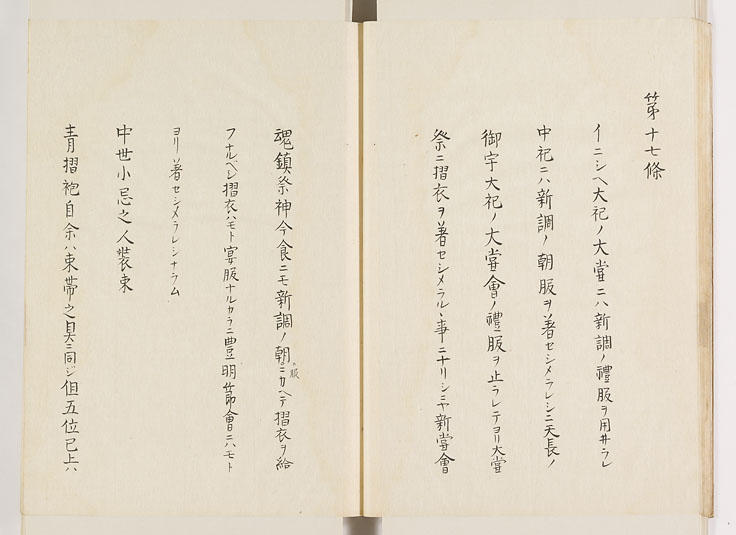 第十七條
イニシヘ大祀ノ大嘗ニハ新調ノ禮服ヲ用井ラレ
中祀ニハ新調ノ朝服ヲ著セシメラレシニ天長ノ
御宇大祀ノ大嘗會ノ禮服ヲ止ラレテヨリ大嘗
祭ニ摺衣ヲ著セシメラルヽ事ニナリシニヤ新嘗會
魂鎮祭神今食ニモ新調ノ朝服ニカヘテ摺衣ヲ給
フナルベシ摺衣ハモト宴服ナルカラニ豊明節會ニハモト
ヨリ著セシメラレシナラム
中世小忌之人裝束
青摺袍自余ハ束帯之具ニ同ジ但五位已上ハ